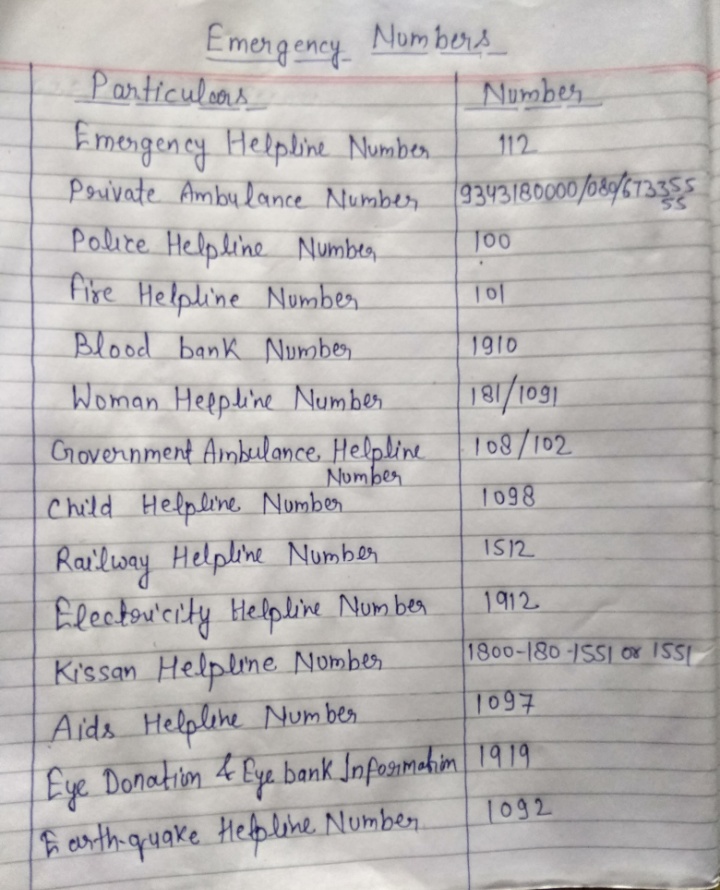 Emergency Numbers
Particulars Number
Emergency Helpline Number 112
Private Ambulance Number 9343180000/080/6733555
55
Police Helpline Number 100
Fire Helpline Number 101
Blood bank Number 1910
Woman Helpline Number 181/1091
Government Ambulance Helpline 108/102
Number
Child Helpline Number 1098
Railway Helpline Number 1512
Electricity Helpline Number 1912
Kissan Helpline Number 1800-180-1551 or 1551
Aids Helpline Number 1097
Eye Donation & Eye bank Information 1919
Earth-quake Helpline Number 1092